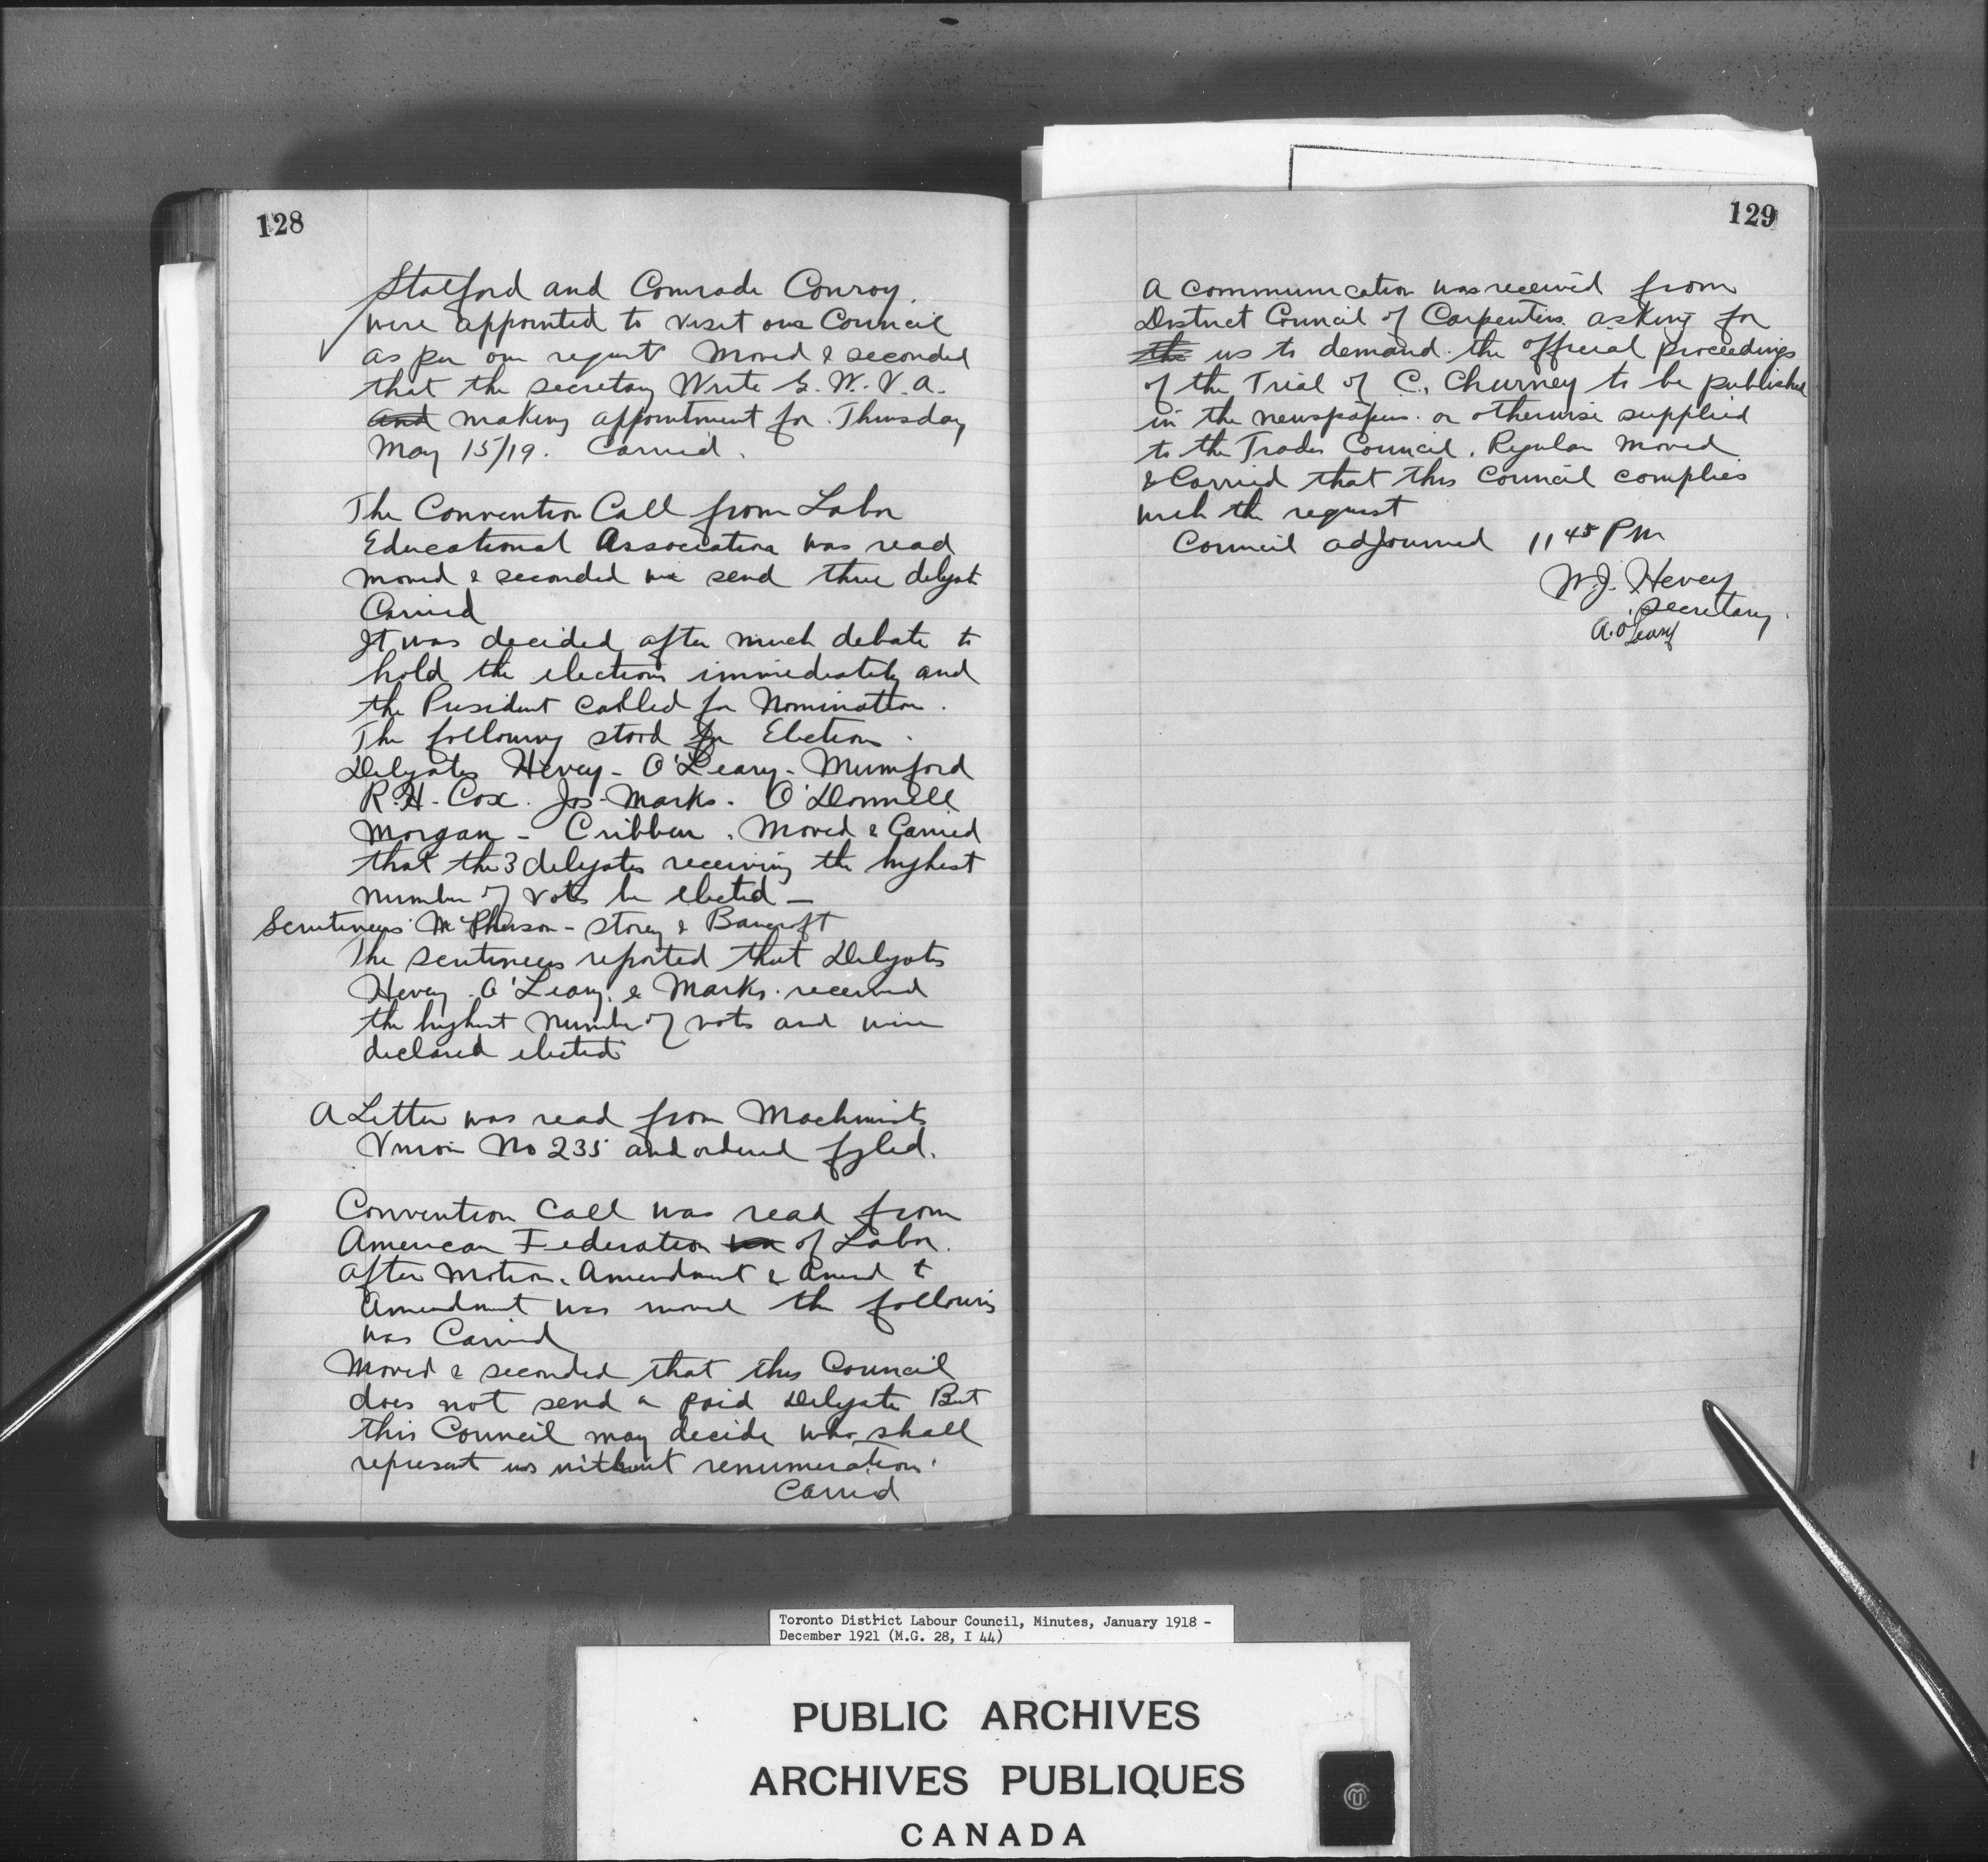 128
Stalford and Comrade Conroy.
were appointed to visit our Council
as per our request Moved & seconded
that the secretary Write G. W. V. A.
and making appointment for Thursday
May 15/19. Carried.
The Convention Call from Labor
Educational Association was read
moved & seconded we send three delegates
Carried
It was decided after much debate to
hold the elections immediately and
the President called for Nomination.
The following stood for Election.
Delegates Hevey - O'Leary - Mumford
R. H. Cox. Jos. Marks. O'Donnell
Morgan - Cribben. Moved & Carried
that the 3 delegates receiving the highest
number of votes be elected —
Scrutineers McPherson - Storey & Bancroft
The scrutineers reported that Delegates
Hevey. O'Leary. & Marks. received
the highest number of votes and were
declared elected
A Letter was read from Machinists
Union No 235 and ordered fyled.
Convention Call was read from
American Federation of Labor.
After Motion. Amendment & Amend to
Amendment was moved the following
was Carried
Moved & seconded that this Council
does not send a paid Delegate But
this Council may decide who shall
represent us without renumeration.
Carried
129
A communication was received from
District Council of Carpenters asking for
the us to demand the official proceedings
of the Trial of C. Churney to be published
in the newspapers. or otherwise supplied
to the Trades Council. Regular Moved
& Carried that this Council complies
with the request
Council adjourned 11 45 PM
W. J. Hevey
secretary.
A. O'Leary
Toronto District Labour Council, Minutes, January 1918 -
December 1921 (M.G. 28, I 44)
PUBLIC ARCHIVES
ARCHIVES PUBLIQUES
CANADA